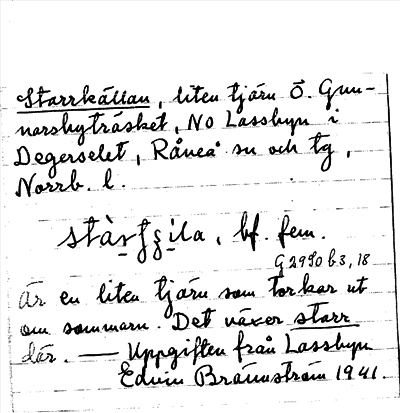 Starrkällan, liten tjärn Ö. Gun-
narsbyträsket, NO Lassbyn i
Degerselet, Råneå sn och tg,
Norrb. l.
bf. fem.
G2990 b3, 18
Är en liten tjärn som torkar ut
om sommarn. Det växer starr
där. — Uppgiften från Lassbyn
Edvin Brännström 1941.